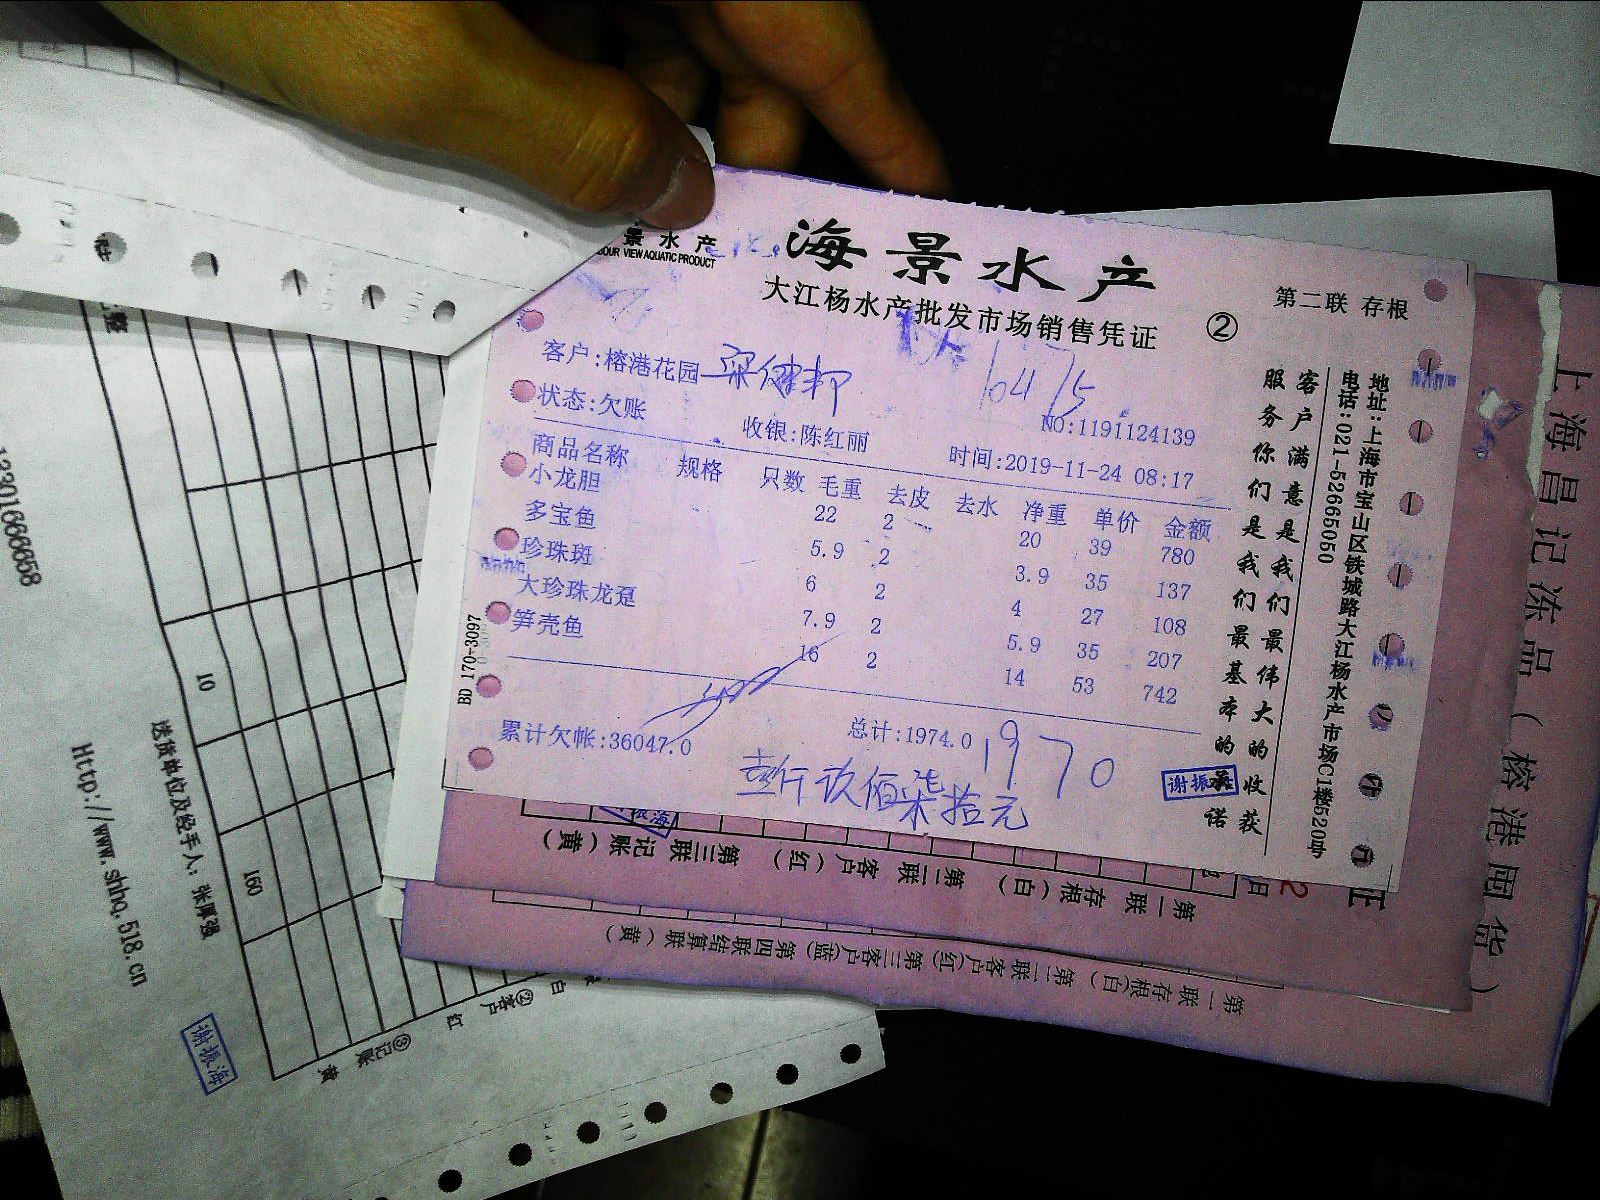 景水产
OUR VIEW AQUATIC PRODUCT
海景水产
大江杨水产批发市场销售凭证
②
第二联 存根
客户:榕港花园
10475
状态:欠账
收银:陈红丽
NO:1191124139
时间:2019-11-24 08:17
商品名称 规格 只数 毛重 去皮 去水 净重 单价 金额
小龙胆 22 2 20 39 780
多宝鱼 5.9 2 3.9 35 137
珍珠斑 6 2 4 27 108
大珍珠龙趸 7.9 2 5.9 35 207
笋壳鱼 16 2 14 53 742
累计欠帐:36047.0
总计:1974.0
1970
壹仟玖佰柒拾元
谢振海
BD 170-3097
客户满意是我们最伟大的收获
服务你们是我们最基本的承诺
地址:上海市宝山区铁城路大江杨水产市场C1楼520号
电话:021-52665050
上海昌记冻品(榕港闽华)
证
第一联 存根(白) 第二联 客户(红) 第三联 记账(黄)
第一联存根(白) 第二联客户(红) 第三客户(蓝) 第四联结算联(黄)
整
10
160
送货单位及经手人: 张厚强
Http://www.shhq.518.cn
13301666658
谢振海
白
②客户
红
③记账
黄